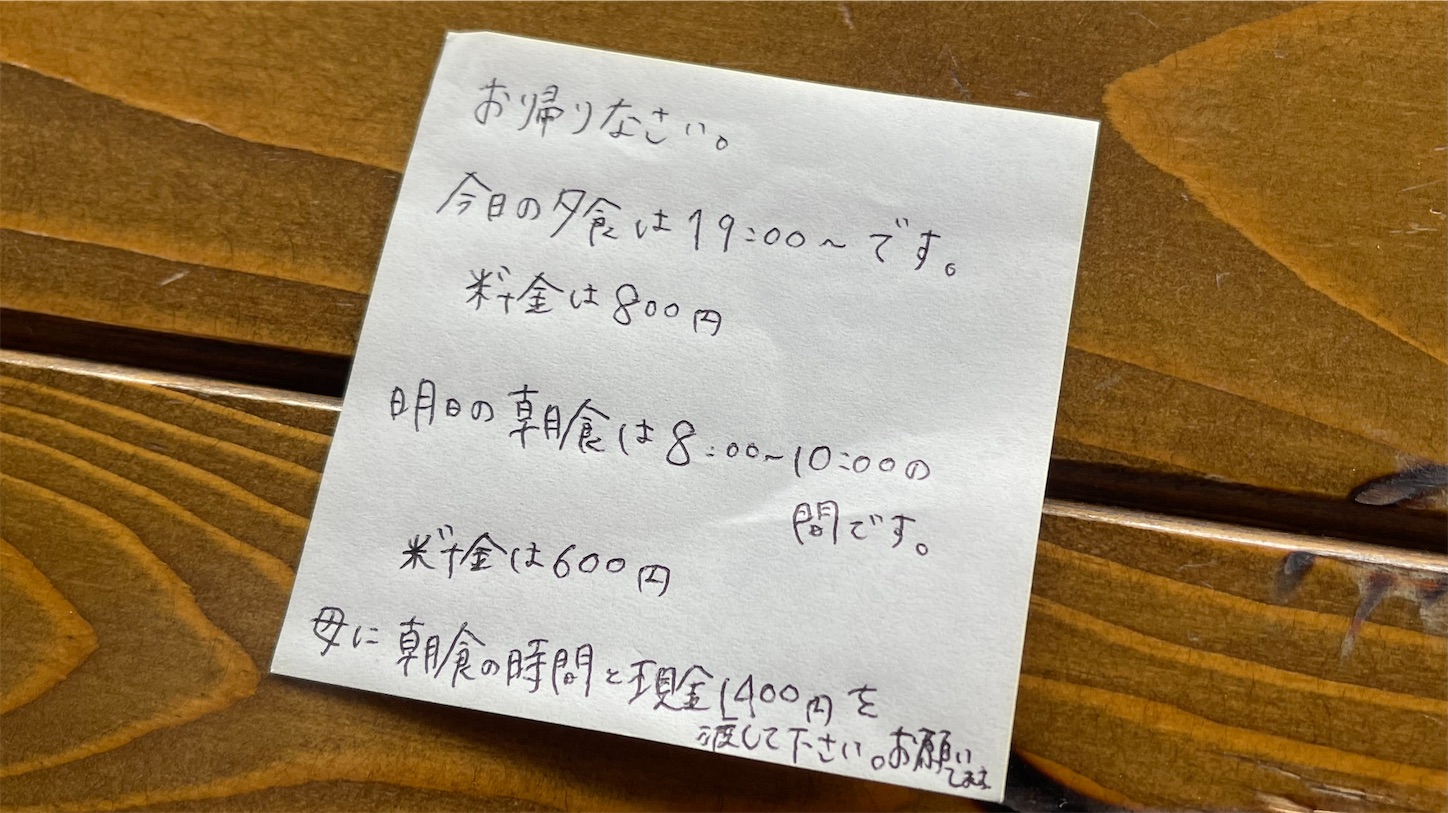 お帰りなさい。
今日の夕食は19:00~です。
料金は800円
明日の朝食は8:00~10:00の
間です。
料金は600円
母に朝食の時間と現金1400円を
渡して下さい。お願い
します